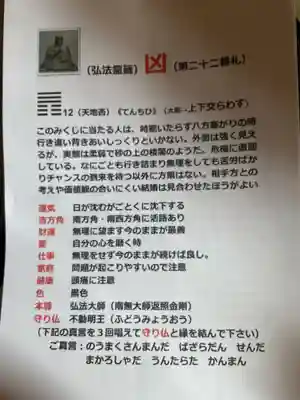 (弘法霊籤) 凶 (第二十二番札)
12 (天地否) 《てんちひ》 上下交らわず》
このみくじに当たる人は、時節いたらず八方塞がりの時
行き違い背きあいしっくりといかない。外面は強く見え
るが、実態は柔弱で砂の上の楼閣のようだ。危機に直面
している。なにごとも行き詰まり無理をしても苦労ばか
りチャンスの到来を待つ以外に方策はない。相手方との
考えや価値観の合いにくい結婚は見合わせたほうがよい
運気 日が沈むがごとくに沈下する
吉方角 南方角・南西方角に活路あり
財運 無理に望まず今のままが最善
愛 自分の心を磨く時
仕事 無理をせず今のままが続けば良し。
家庭 問題が起こりやすいので注意
健康 頭痛に注意
色 黒色
本尊 弘法大師(南無大師遍照金剛)
守り仏 不動明王(ふどうみょうおう)
(下記の真言を3回唱えて守り仏と縁を結んで下さい)
ご真言:のうまくさんまんだ ばざらだん せんだ
まかろしゃだ うんたらた かんまん